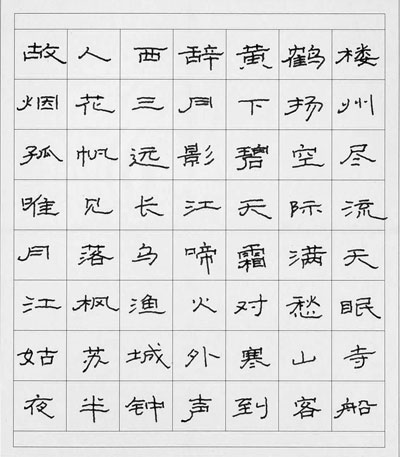 故人西辞黄鹤楼
烟花三月下扬州
孤帆远影碧空尽
唯见长江天际流
月落乌啼霜满天
江枫渔火对愁眠
姑苏城外寒山寺
夜半钟声到客船